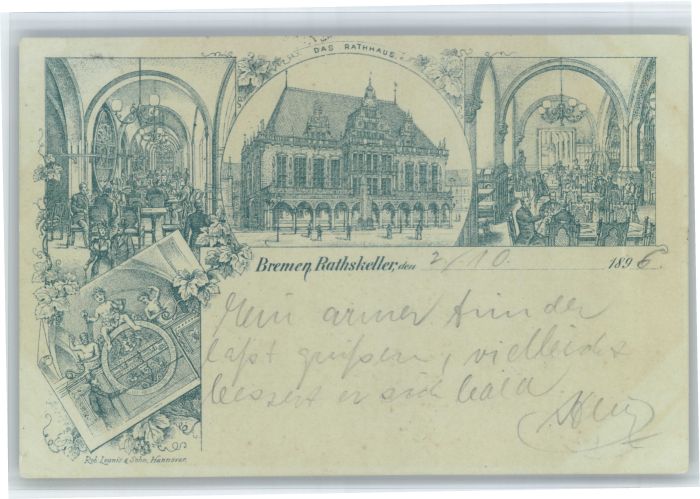 DAS RATHHAUS.
Bremen, Rathskeller, den 2/10. 1896.
Mein armer
laßt grüßen, vielleicht
bessert er sich bald
Rob. Leunis & Sohn, Hannover.